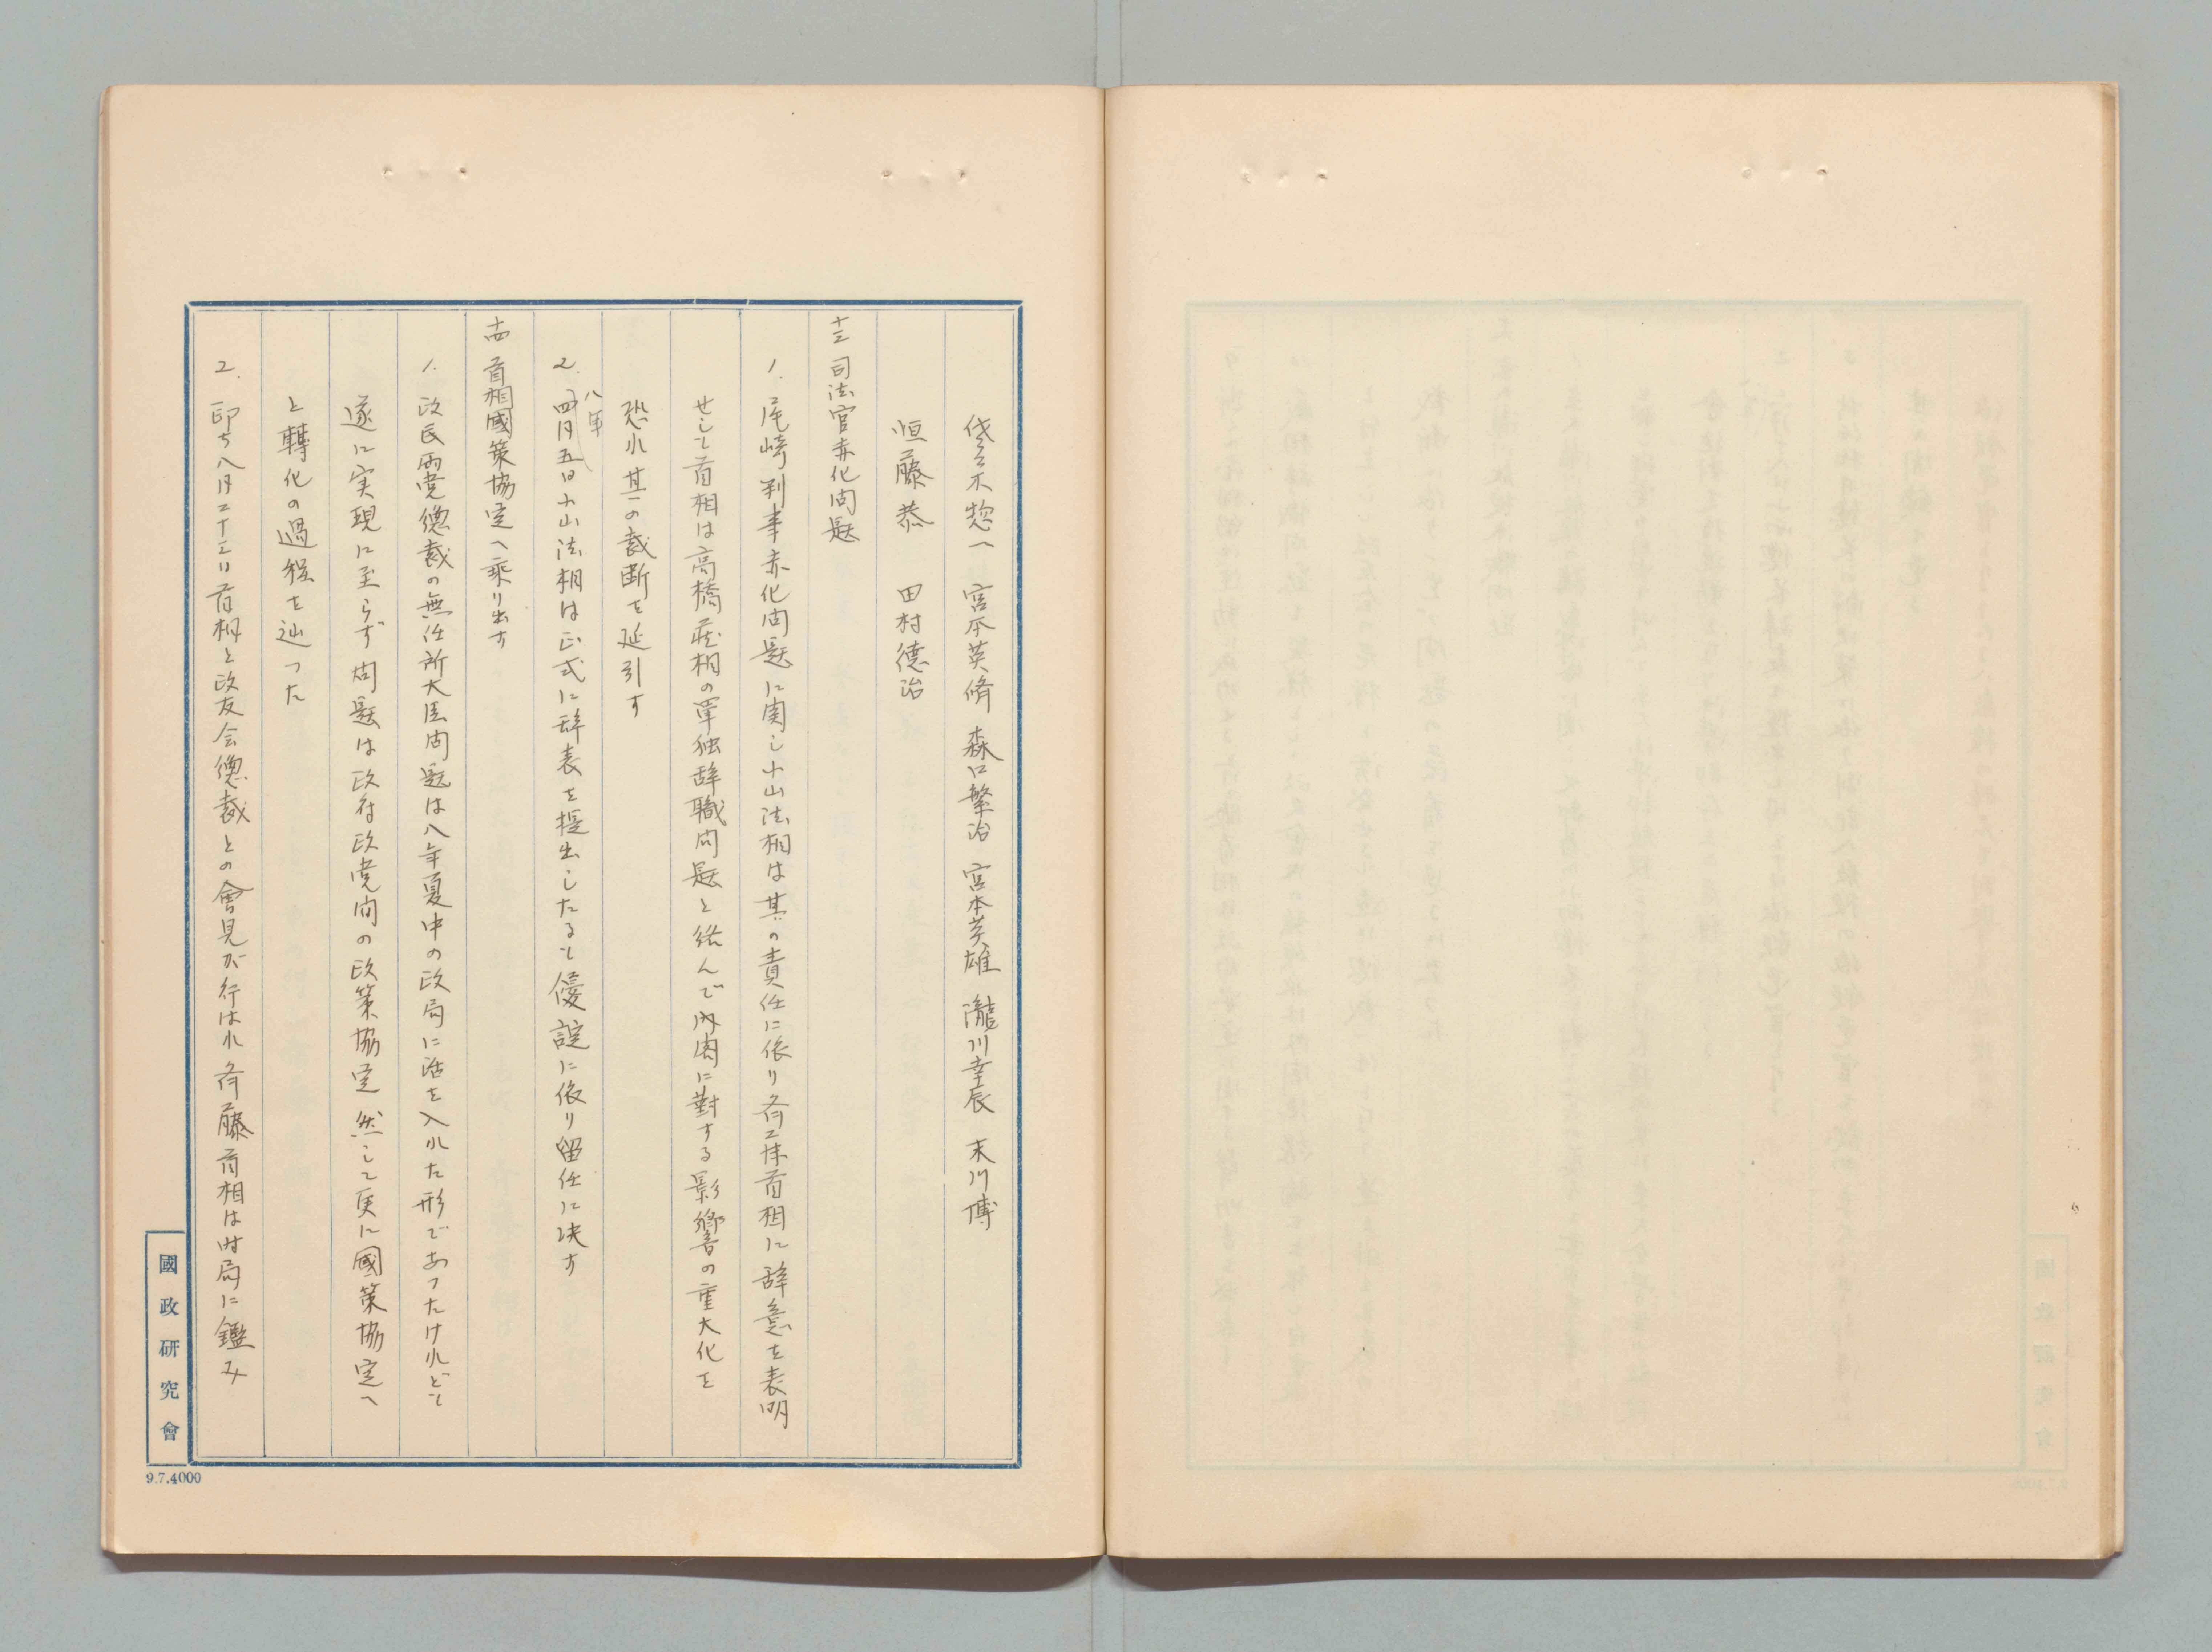 佐々木惣一 宮本英脩 森口繁治 宮本英雄 瀧川幸辰 末川博
恒藤恭 田村徳治
十三 司法官赤化问题
1. 尾崎判事赤化问题に関し小山法相は其の責任に依り斉藤首相に辞意を表明
せしも首相は高橋蔵相の単独辞職问题と絡んで内閣に對する影響の重大化を
恐れ其の裁断を延引す
2. 八年四月五日小山法相は正式に辞表を提出したるも優諚に依り留任に決す
十四 首相國策協定へ乗り出す
1. 政民両党總裁の無任所大臣问题は八年夏中の政局に活を入れた形であつたけれども
遂に実現に至らず 问题は政府政党间の政策協定 然して更に國策協定へ
と轉化の過程を辿つた
2. 即ち八月二十三日首相と政友会總裁との會見が行はれ斉藤首相は时局に鑑み
國政研究會
9.7.4000